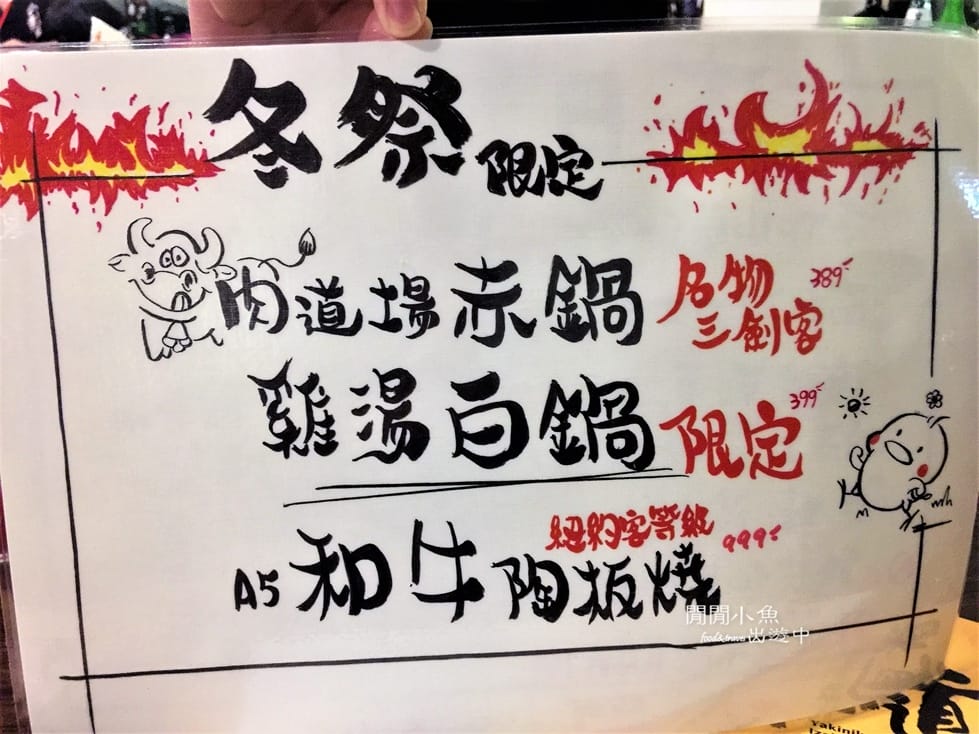 冬祭限定
肉道場赤鍋 名物三劍客 389
雞湯白鍋 限定 399
紐約客等級 999
A5和牛陶板燒
閒閒小魚
food&travel出遊中
道
yakini